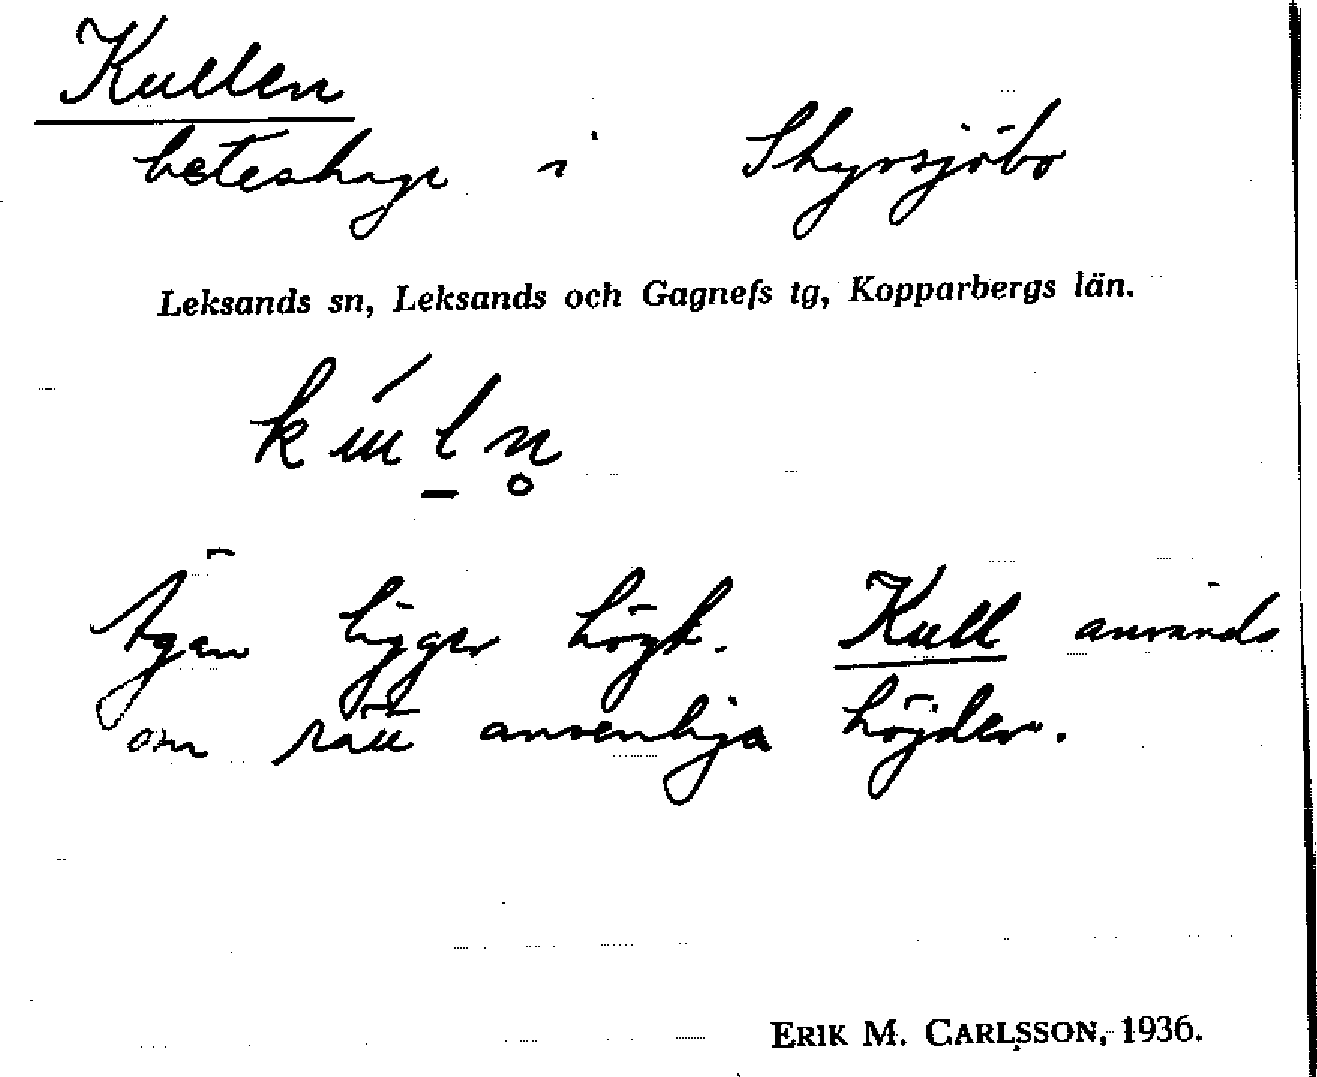 Kullen
beteshage i Skyrsjöbo
Leksands sn, Leksands och Gagnefs tg, Kopparbergs län.
Ägan ligger högt. Kull används
om rätt ansenliga höjder.
ERIK M. CARLSSON, 1936.